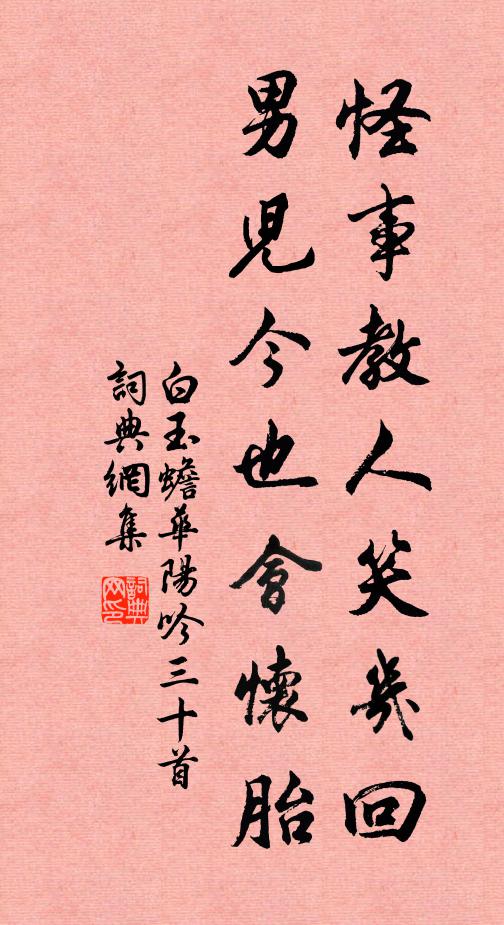 怪事教人笑幾回
男兒今也會懷胎
白玉蟾華陽吟三十首
詞典網集
詞典网印